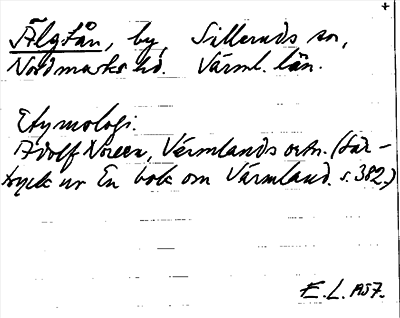 Älgtån, by, Silleruds sn,
Nordmarks hd. Värml. län.
Etymologi.
Adolf Noreen, Värmlands ortn. (Sär-
tryck ur En bok om Värmland. s. 382)
E. L. 1937.